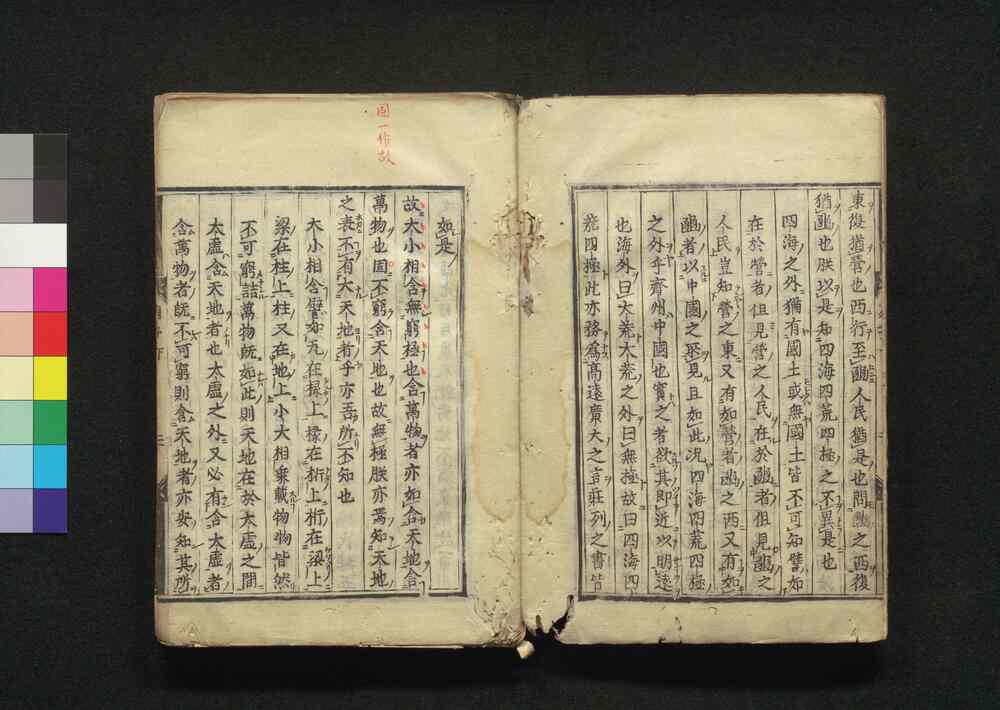 東復猶營也西行至豳人民猶是也問豳之西復
猶豳也朕以是知四海四荒四極之不異是也
四海之外猶有國土或無國土皆不可知譬如
在於營者但見營之人民在於豳者但見豳之
人民豈知營之東又有如營者豳之西又有如
豳者以中國之所見且如此況四海四荒四極
之外乎齊州中國也實之者欲其即近以明遠
也海外曰大荒大荒之外曰無極故曰四海四
荒四極此亦務為高遠廣大之言莊列之書皆
如是
故大小相含無窮極也含萬物者亦如含天地含
萬物也固不窮含天地也故無極朕亦焉知天地
之表不有大天地者乎亦吾所不知也
大小相含譬如瓦在椽上椽在桁上桁在梁上
梁在柱上柱又在地上小大相乘載物物皆然
不可窮詰萬物既如此則天地在於太虛之間
太虛含天地者也太虛之外又必有含太虛者
含萬物者既不可窮則含天地者亦安知其所
固一作故